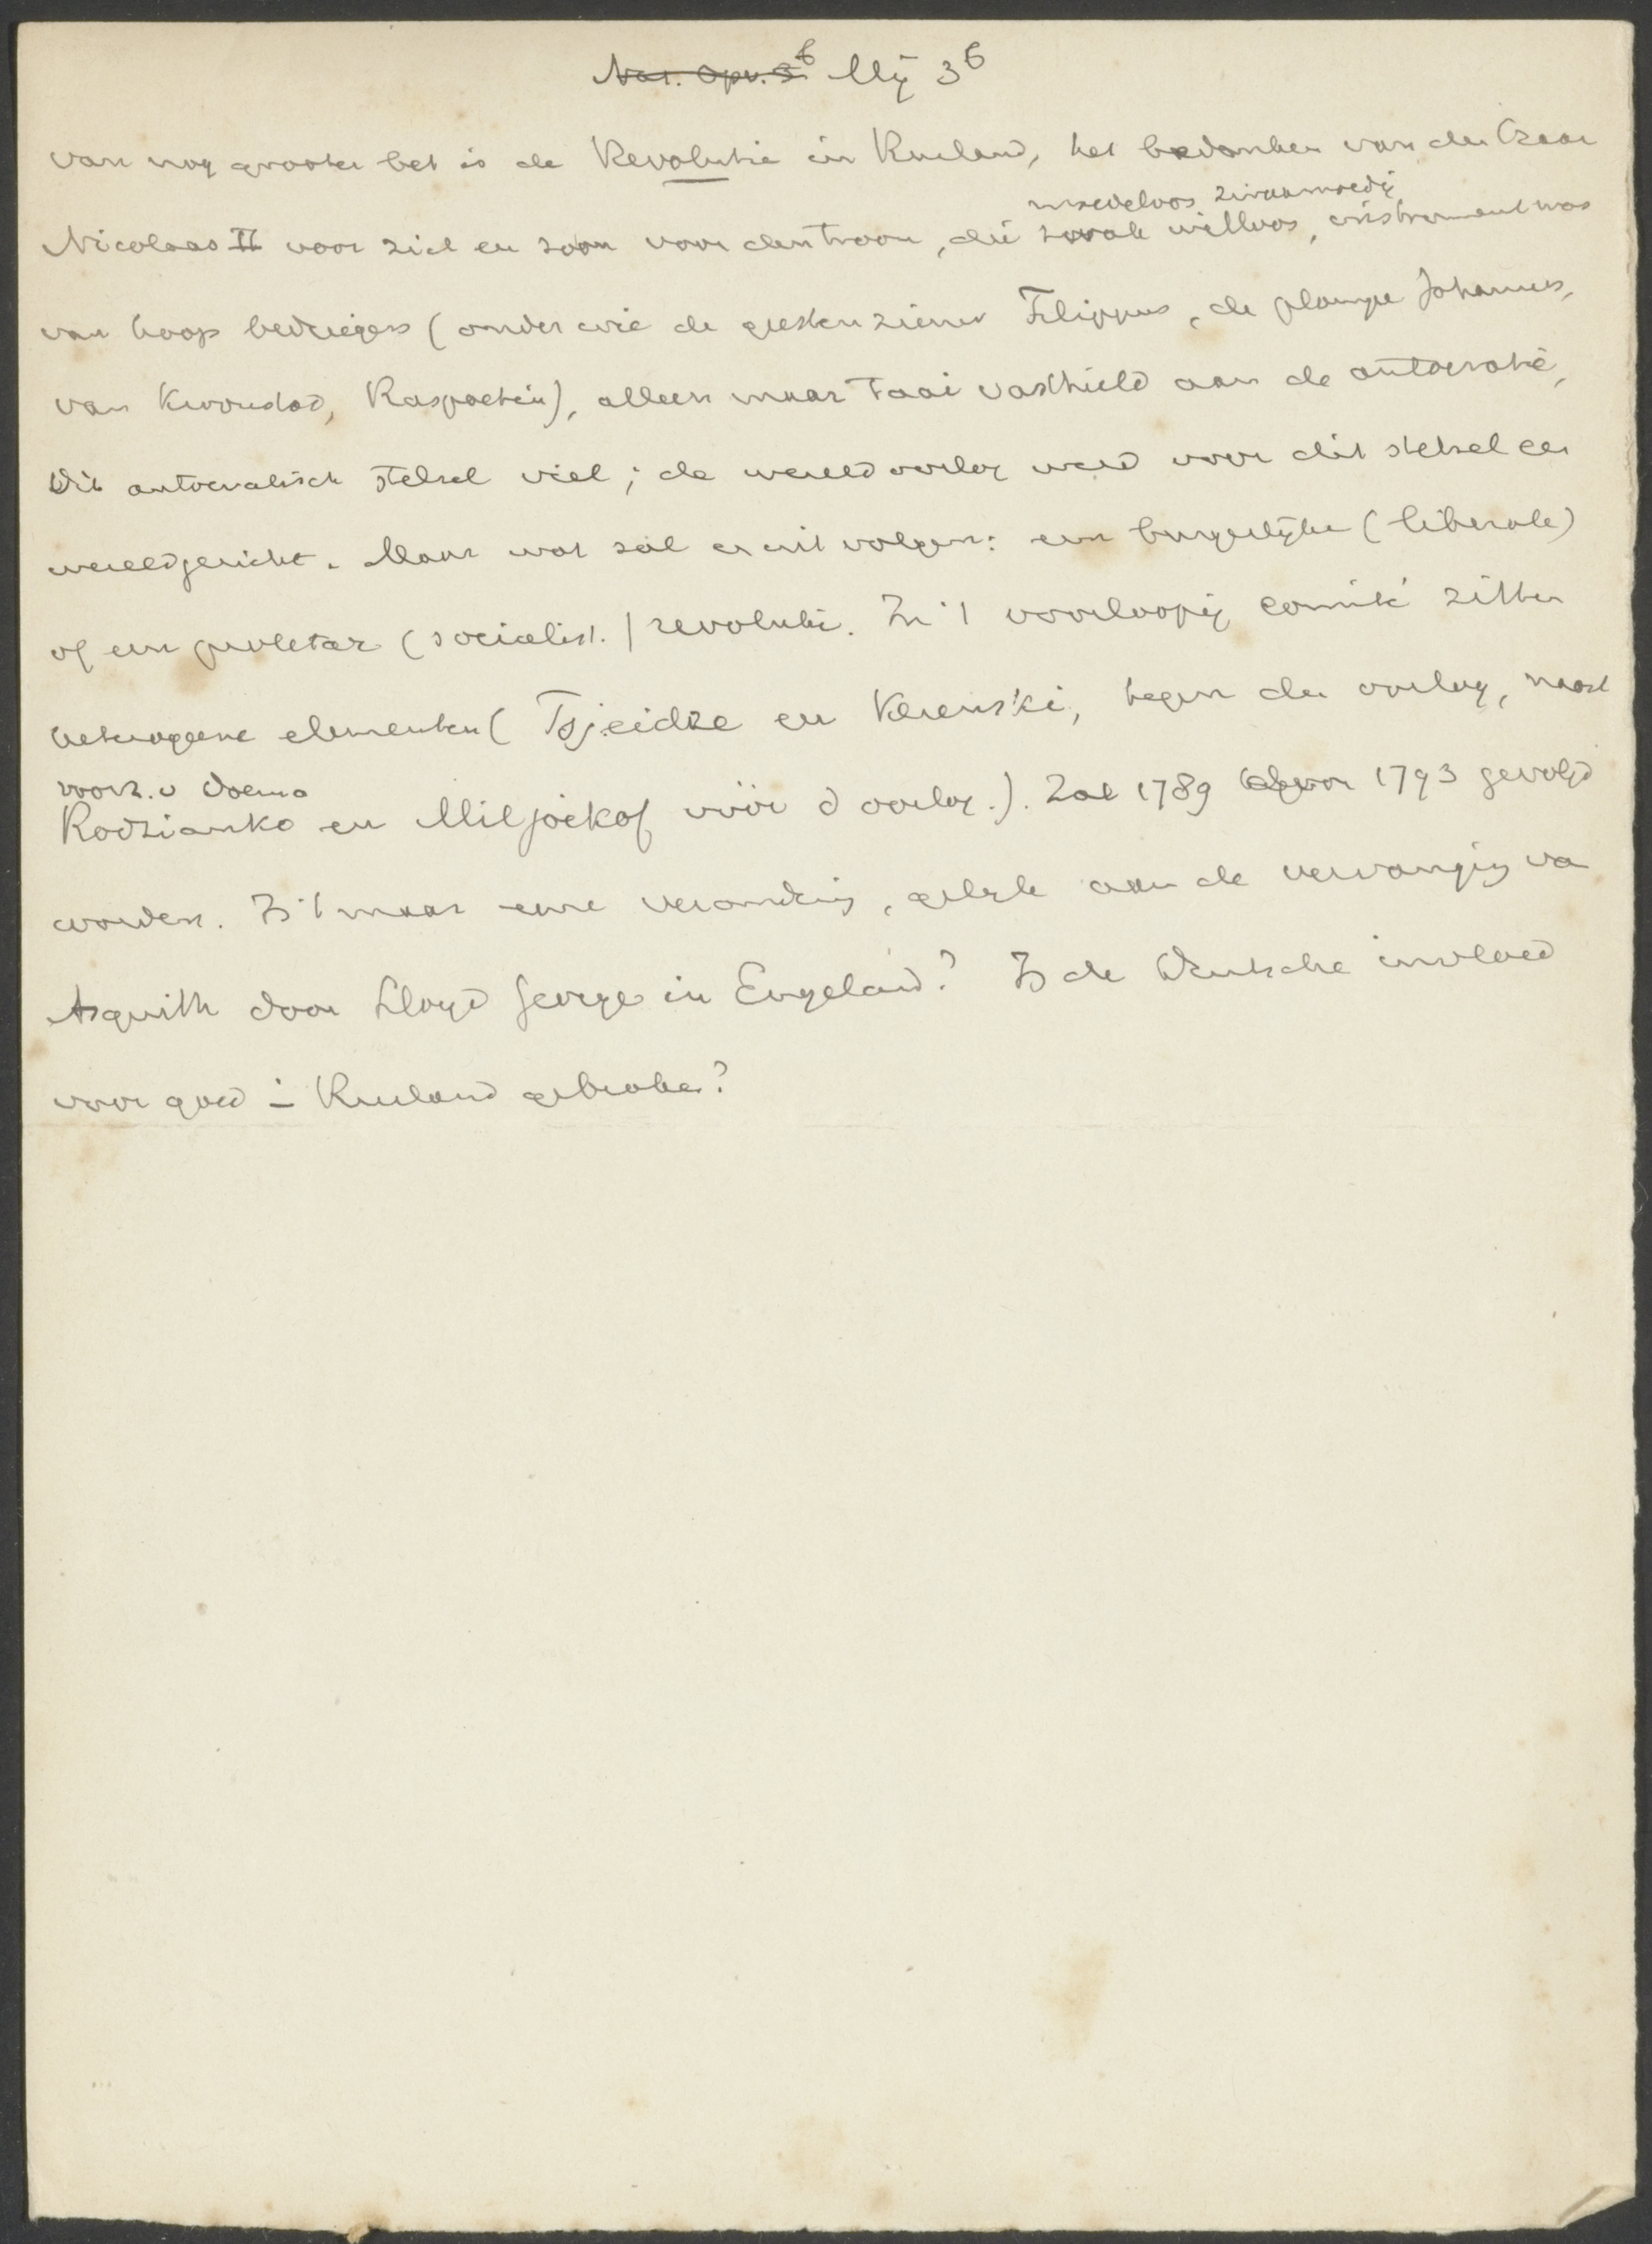 Nat. Opv. 3b Mij 3b
van nog grooter bet is de Revolutie in Rusland, het bedanken van den Czaar
moedeloos zwaarmoedig
Nicolaas II voor zich en zoon voor den troon, die zwak willoos, instrument was
van hoop bedriegers (onder wie de geestenziener Filippus, de plompe Johannes,
van Kroonstad, Raspoetin), alleen maar taai vasthield aan de autocratie,
Dit autocratisch stelsel viel; de wereldoorlog werd voor dit stelsel een
wereldgericht. Maar wat zal er uit volgen: een burgerlijke (liberale)
of een proletar (socialist.) revolutie. In 't voorloopig comité zitten
heterogene elementen (Tsjeidze en Kerenski, tegen den oorlog, naast
voorz. v Doema
Rodzianko en Miljoekof vóór d oorlog.). Zal 1789 door 1793 gevolgd
worden. Is 't maar eene verandering, gelijk aan de vervanging va
Asquith door Lloyd George in Engeland? Is de Duitsche invloed
voor goed in Rusland gebroken?